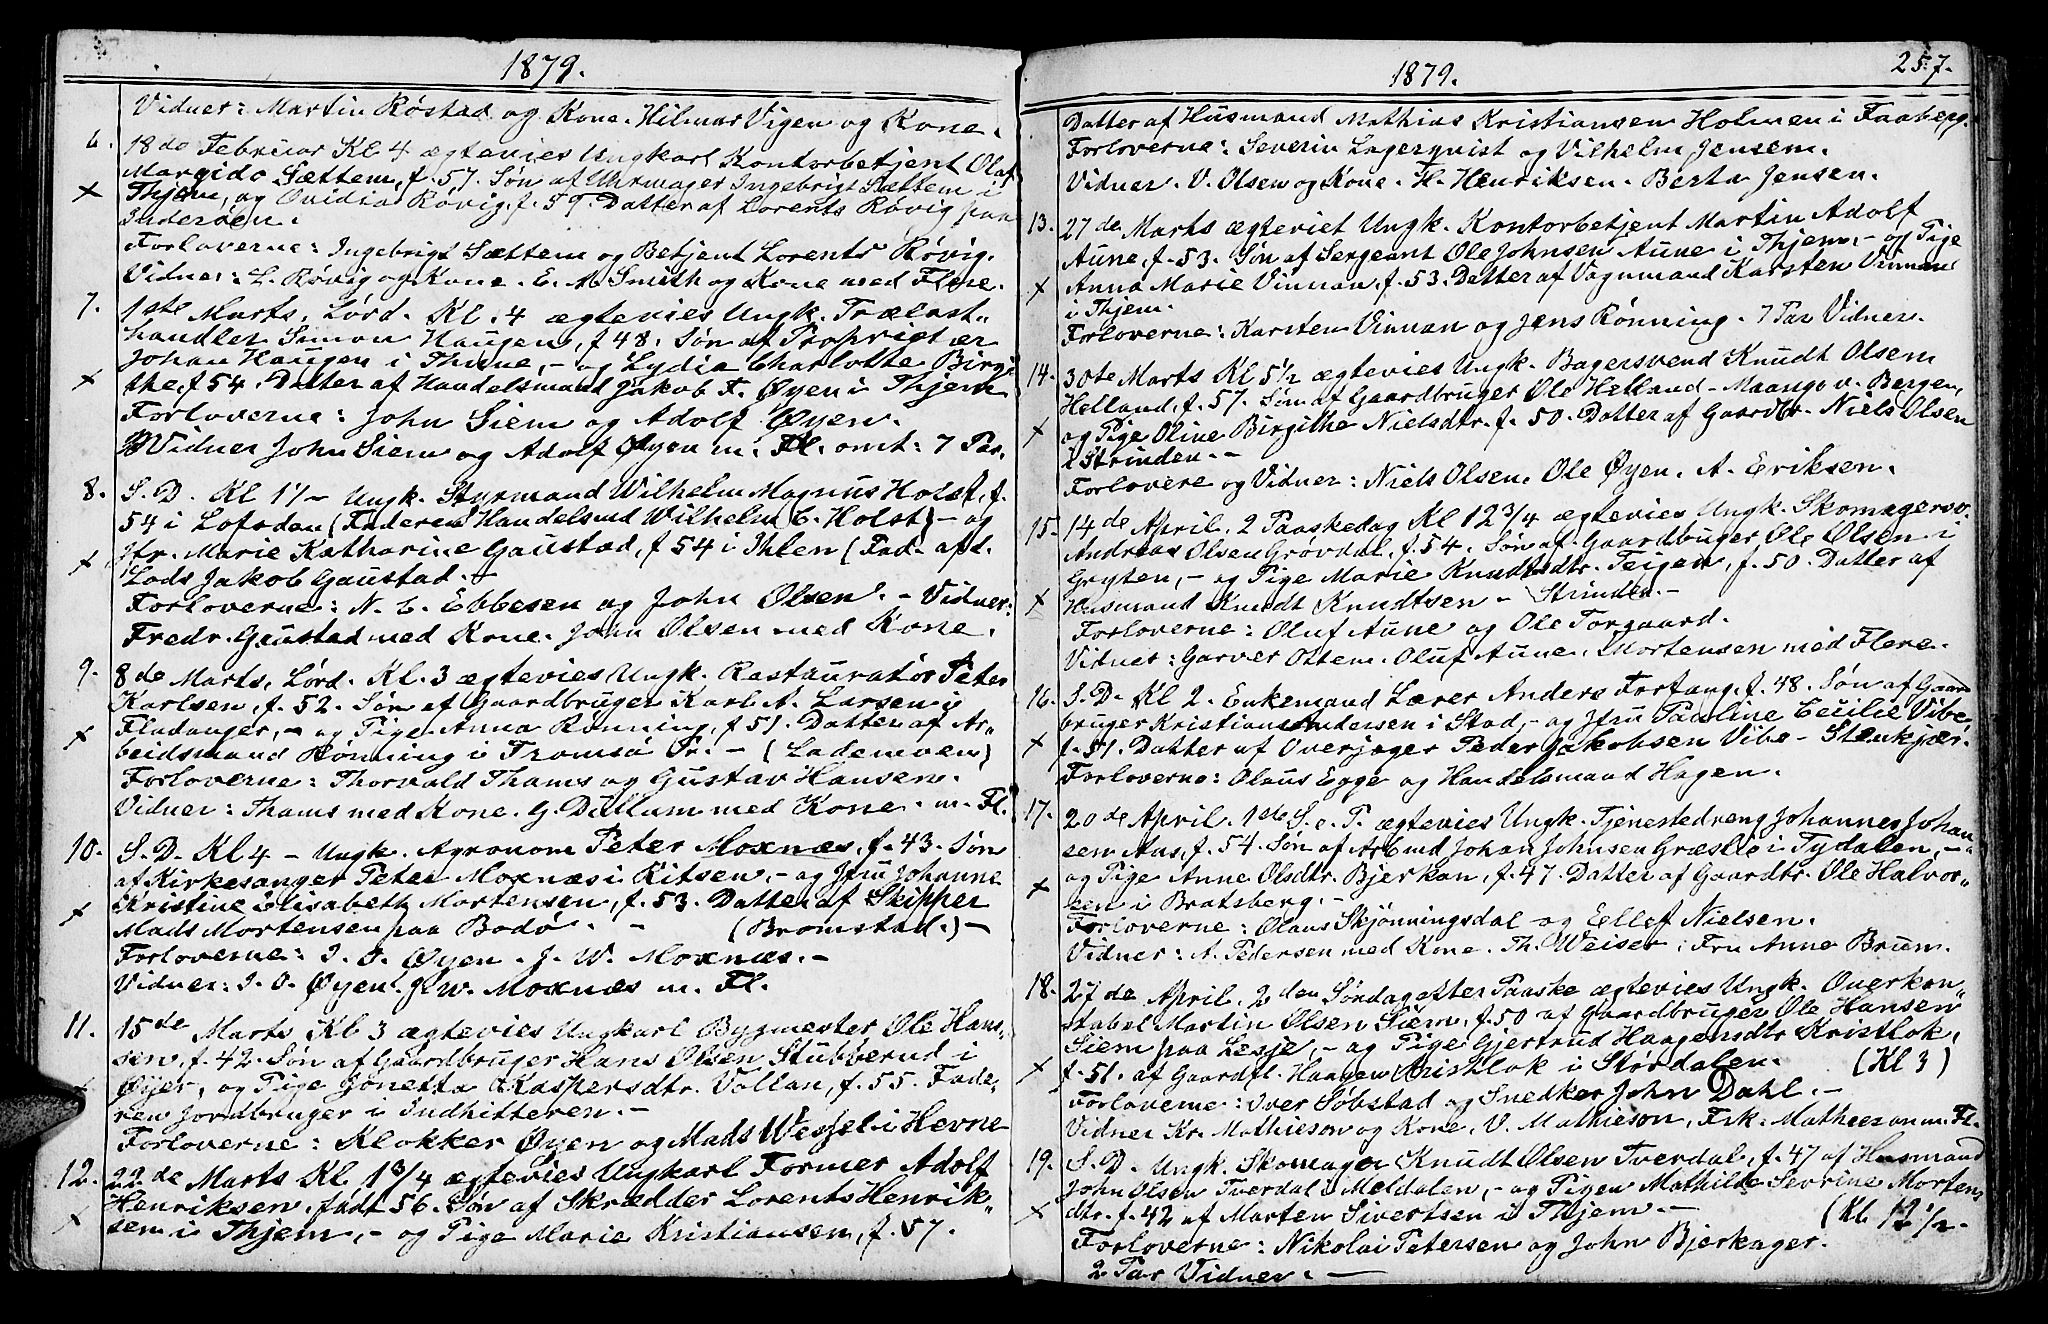 1879.
Vidner: Martin Røstad og Kone. Hilmar Vigen og Kone.
6. 18de Februar Kl 4 ægtevies Ungkarl Kontorbetjent Olaf
Margido Sættem, f. 57. Søn af Uhrmager Ingebrigt Sættem i
x Thjem, og Ovidia Røvig, f. 59. Datter af Lorents Røvig paa
Inderøen.
Forloverne: Ingebrigt Sættem og Betjent Lorents Røvig.
Vidner: L. Røvig og Kone. E. A. Smith og Kone med Flere.
7. 1ste Marts, Lørd. Kl. 4 ægtevies Ungk. Trælast-
handler Simon Haugen, f 48. Søn af Proprietær
Johan Haugen i Thune, - og Lydia Charlotte Birgi
x the, f 54. Datter af Handelsmand Jakob F. Øyen i Thjem
Forloverne: John Siem og Adolf Øyen.
Vidner John Siem og Adolf Øyen m. Fl. omt: 7 Par.
8. S. D. Kl 1 1/- Ungk. Styrmand Wilhelm Magnus Holst, f.
54 i Lofoden (Faderen Handelsmd Wilhelm C. Holst) - og
x Jfr. Marie Katharine Gaustad, f 54 i Ihlen (Fad. afd.
Lods Jakob Gaustad. -
Forloverne: N. C. Ebbesen og John Olsen. - Vidner:
Fredr. Gaustad med Kone. John Olsen med Kone.
9. 8de Marts, Lørd. Kl. 3 ægtevies Ungk. Rastauratør Peter
Karlsen, f. 52. Søn af Gaardbruger Karl A. Larsen i
x Fladanger, - og Pige Anna Rønning, f 51. Datter af Ar-
beidsmand Rønning i Tromsø Pr. - (Lademoen)
Forloverne: Thorvald Thams og Gustav Hansen.
Vidner: Thams med Kone. G. Dullum med Kone. m. Fl.
10. S. D. Kl 4 - Ungk. Agronom Peter Moxnæs, f. 43. Søn
af Kirkesanger Peter Moxnæs i Ritsen, - og Jfru Johanne
x Kristine Elisabeth Mortensen, f. 53. Datter af Skipper
Mads Mortensen paa Bodø. - (Bromstad.) -
Forloverne: I. O. Øyen. J. W. Moxnæs. -
Vidner: I. O. Øyen. J. W. Moxnæs m. Fl.
11. 15de Marts Kl 3 ægtevies Ungkarl Bygmester Ole Han-
sen, f. 42. Søn af Gaardbruger Hans Olsen Stubberud i
x Øyer, og Pige Jonetta Kaspersdtr. Vollan, f. 55. Fade-
ren Jordbruger i Indhitteren. -
Forloverne: Klokker Øyen og Mads Wessel i Hevne
12. 22de Marts Kl 1 3/4 ægtevies Ungkarl Former Adolf
Henriksen, født 56. Søn af Skrædder Lorents Henrik-
x sen i Thjem, - og Pige Marie Kristiansen, f. 57.
1879. 257.
Datter af Husmand Mathias Kristiansen Holmen i Faaberg.
Forloverne: Severin Lagerqvist og Vilhelm Jensen.
Vidner. V. Olsen og Kone. H. Henriksen. Berta Jensen.
13. 27de Marts ægteviet Ungk. Kontorbetjent Martin Adolf
Aune, f. 53. Søn af Sergeant Ole Johnsen Aune i Thjem, - og Pige
x Anna Marie Vinnan, f. 53. Datter af Vognmand Karsten Vinnan
i Thjem.
Forloverne: Karsten Vinnan og Jens Rønning. 7 Par Vidner.
14. 30te Marts Kl 5 1/2 ægtevies Ungk. Bagersvend Knudt Olsen
Helland, f. 57. Søn af Gaardbruger Ole Helland - Maange v. Bergen,
x og Pige Oline Birgithe Nielsdtr. f. 50. Datter af Gaardbr. Niels Olsen
i Strinden. -
Forlovere og Vidner: Niels Olsen. Ole Øyen. A. Eriksen.
15. 14de April. 2 Paaskedag Kl 12 3/4 ægtevies Ungk. Skomagersv.
Andreas Olsen Grøvdal, f. 54. Søn af Gaardbruger Ole Olsen i
Gryten, - og Pige Marie Knudtsdtr. Teigen, f. 50. Datter af
x Husmand Knudt Knudtsen - Strinden. -
Forloverne: Oluf Aune og Ole Torgaard.
Vidner: Garver Ottem. Oluf Aune. Mortensen med Flere.
16. S. D. Kl 2. Enkemand Lærer Anders Fortang, f. 48. Søn af Gaard
bruger Kristian Andersen i Stod, - og Jfru Pauline Cecilie Vibe,
x f. 51. Datter af Overjæger Peder Jakobsen Vibe - Stenkjær.
Forloverne: Olaus Egge og Handelsmand Hagen.
17. 20de April. 1ste S. e. P. ægtevies Ungk. Tjenestedreng Johannes Johan
sen Aas, f. 54. Søn af Arbmd Johan Johnsen Græsli i Tydalen, -
x og Pige Anne Olsdtr. Bjerkan, f. 47. Datter af Gaardbr. Ole Halvor-
sen i Bratsberg. -
Forloverne: Olaus Skjønningsdal og Ellef Nielsen.
Vidner: A. Pedersen med Kone. Th. Weiser. Fru Anne Bruen.
18. 27de April. 2den Søndag efter Paaske ægtevies Ungk. Overkon-
stabel Martin Olsen Siem, f. 50 af Gaardbruger Ole Hansen
Siem paa Lesje, - og Pige Gjertrud Haagensdtr Kristlok,
x f. 51. af Gaardfl. Haagen Kristlok i Størdalen. (Kl 3)
Forloverne: Iver Søbstad og Snedker John Dahl. -
Vidner Kr. Mathieson og Kone, V. Mathieson, Frk. Matheeson m. Fl.
19. S. D. Ungk. Skomager Knudt Olsen Tverdal, f. 47 af Husmand
John Olsen Tverdal i Meldalen, - og Pigen Mathilde Sevrine Mortens
x dtr. f. 42 af Morten Sivertsen i Thjem. - (Kl 12 1/2 -
Forloverne: Nikolai Petersen og John Bjerkager.
2 Par Vidner. -